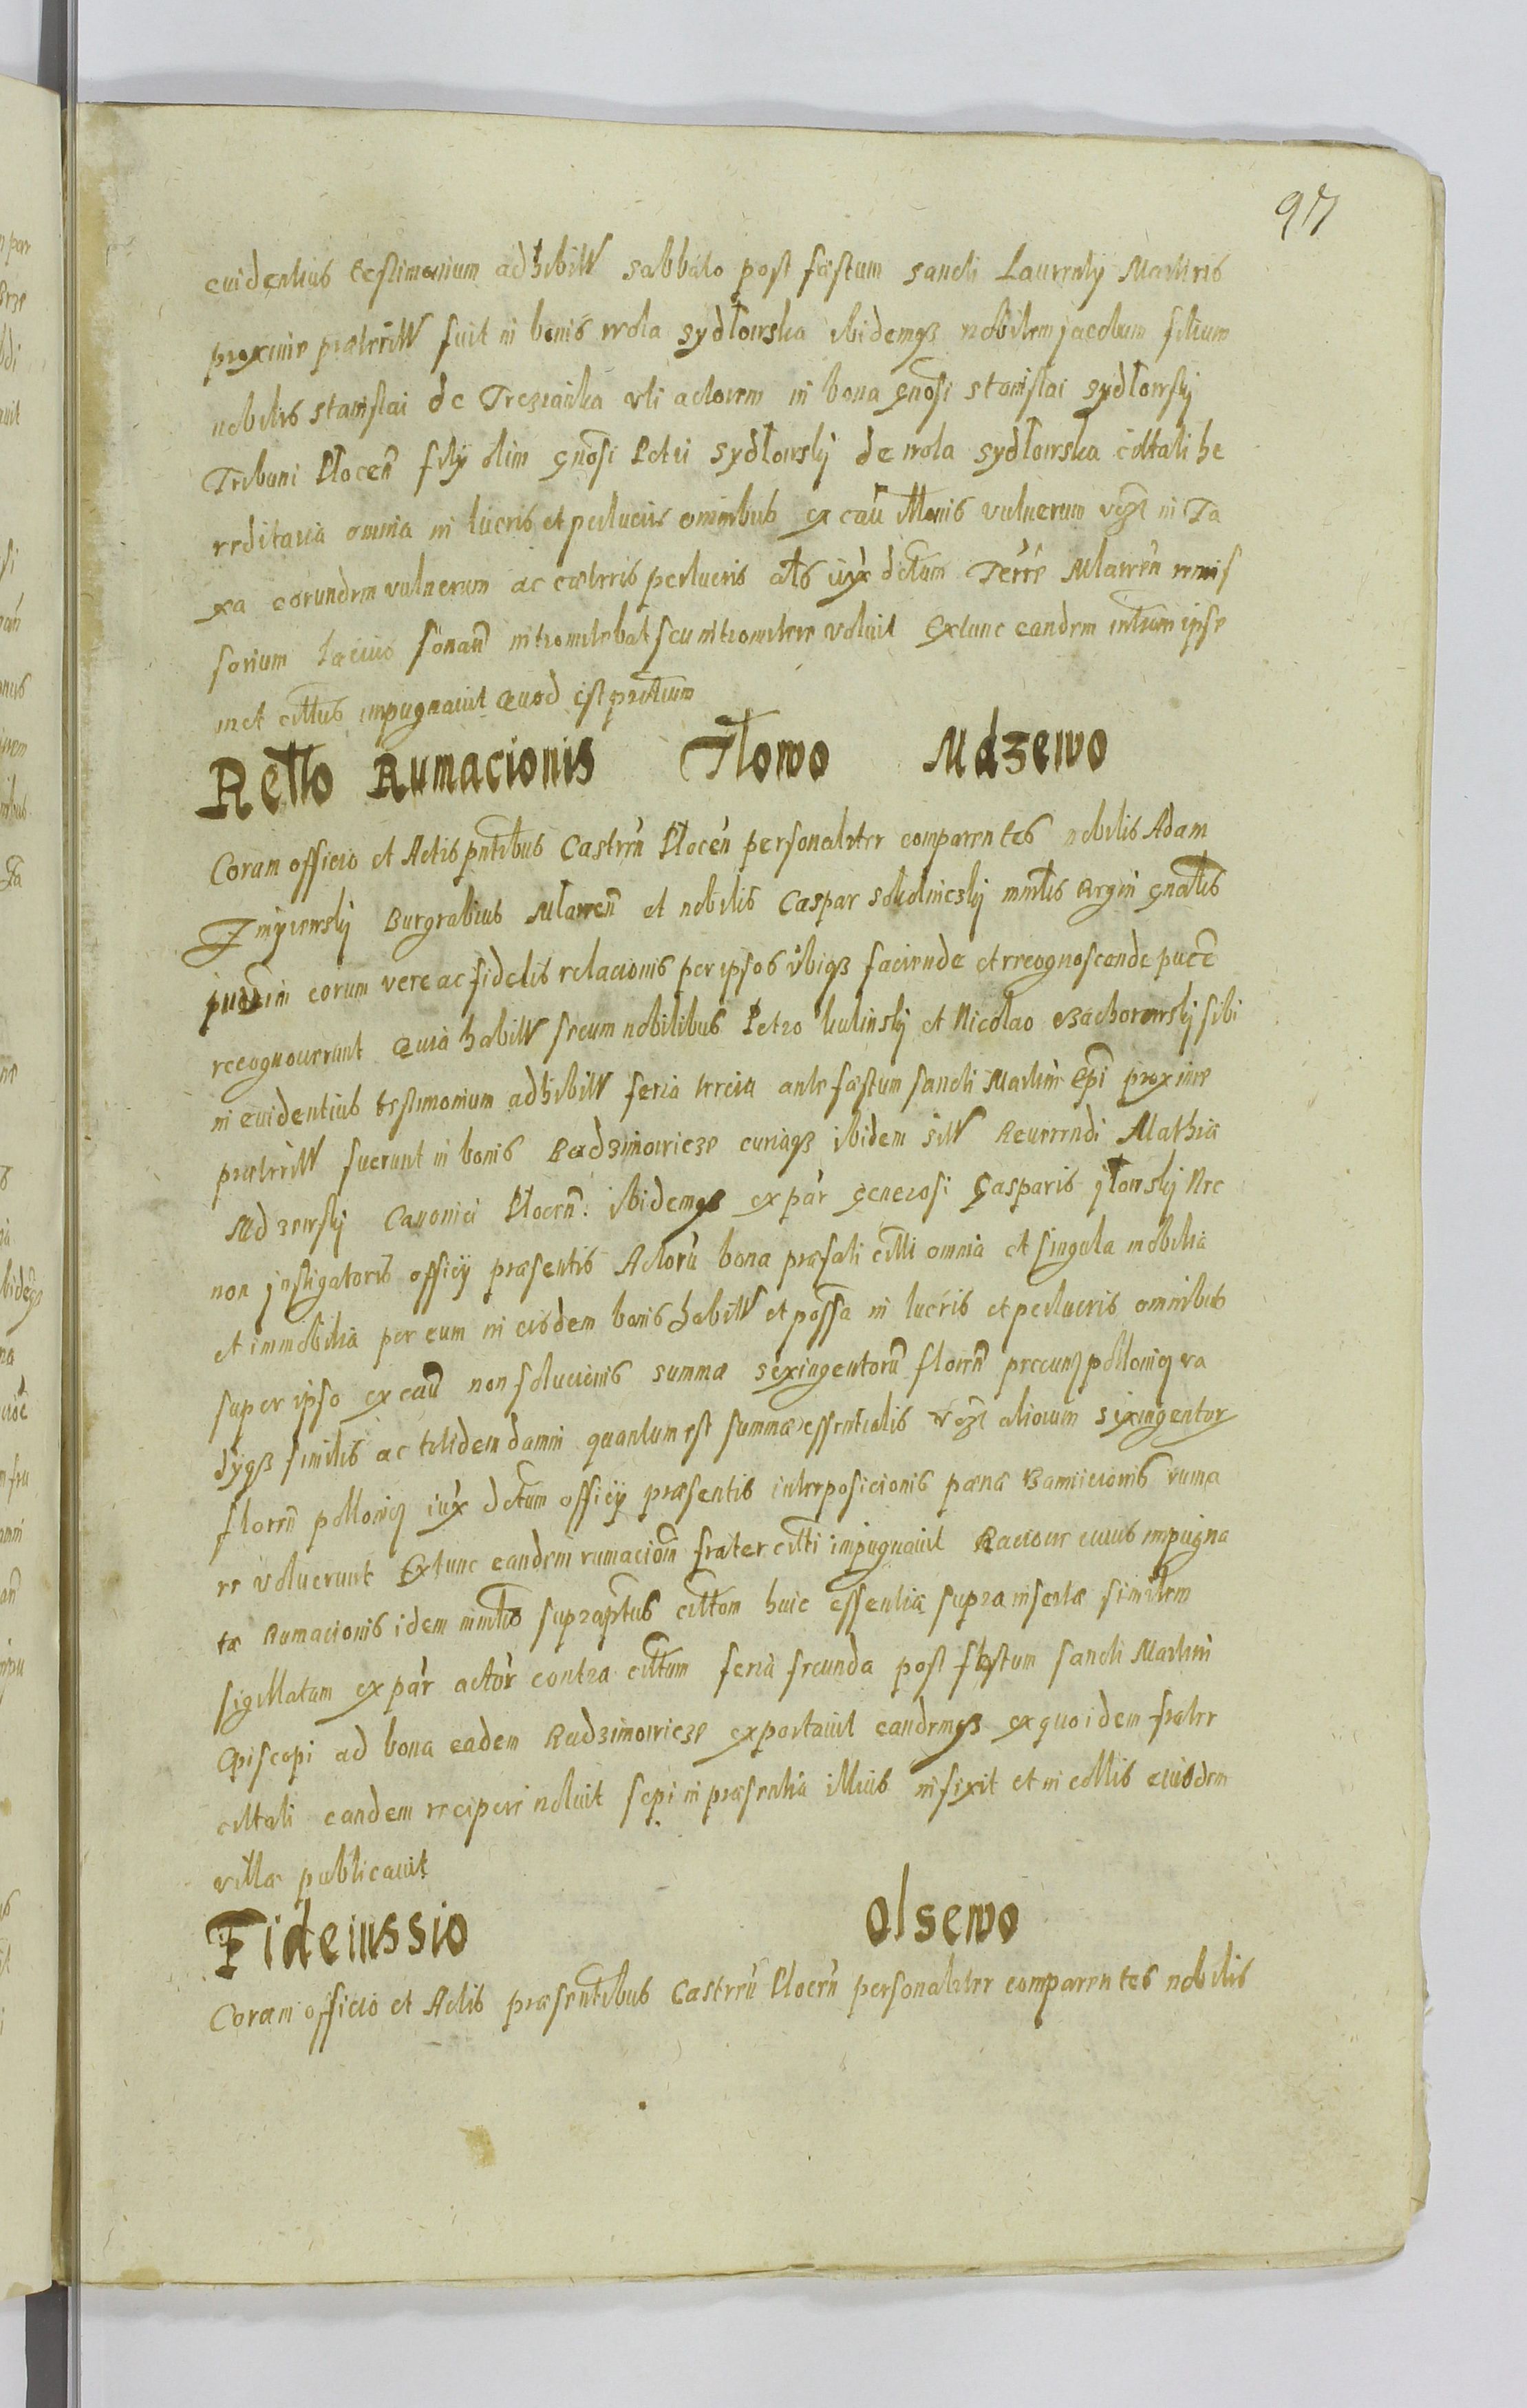 97
euidentius testimonium adhibitt sabbato post fæstum sancti Laurentÿ Martiris
proxime præteritt fuit in bonis wola sydłowska ibidemqß nobilem jacobum filium
nobilis stanislai de Trczianka uti actorem in bona gnosi stanislai sydłowskj
Tribuni Płocen filÿ olim gnosi Petri sydłowskj de wola sydłowska cittati he
reditaria omnia in lucris et perlucris omnibus ex cau illonis vulnerum in Ta
xa eorundem vulnerum ac cæteris perlucris als iux dctum Terre Mlawen remis
sorium sonan intromitebat seu intromitere voluit Extunc eandem ipse
met cittus impugnauit Quod est
Retto Rumacionis Iłowo Mdzewo
Coram officio et Actis pntibus Castren Płocen personaliter comparentes nobilis Adam
Burgrabius Mławen et nobilis Caspar mntis Regni gnatis
eorum vere ac fidelis relacionis per ipsos vbiqß faciende et recognoscende
recognouerunt Quia habitt secum nobilibus Petro kulinskj et Nicolao Bachorowskj sibi
in euidentius testimonium adhibitt feria tercia ante fæstum sancti Martini Epi proxime
præteritt fuerunt in bonis Radzimowicze curiaqß ibidem sitt Reuerendi Mathiæ
Mdzewskj Canonici Płocen. ibidemqß ex par generosi Gasparis jłowskj Nec
non jnstigatoris officÿ præsentis Actoru bona præfati citti omnia et singula mobilia
et immobilia per eum in eisdem bonis habitt et possa in lucris et perlucris omnibus
super ipso ex cau non solucionis summæ sexingentoru floren pecun pollonicq va
dÿqß similis ac totidem damni quantum est summæ essentialis aliorum sexingentor
floren pollonicq iux dctum officÿ præsentis interposicionis pæna Banniicionis ruma
re voluerunt Extunc eandem rumaciom frater citti impugnauit Racione cuius impugna
tæ Rumacionis idem mntis supraptus cittom huic essentia supra insertæ similem
sigillatam ex par actor contra cittum feria secunda post fæstum sancti Martini
Episcopi ad bona eadem Radzimowicze exportauit eandemqß ex quo idem frater
cittati eandem recipere noluit sepi in præsentia illius infixit et in collis eiusdem
villæ publicauit
Fideiussio Olsewo
Coram officio et Actis præsentibus Castren Płocen personaliter comparentes nobilis